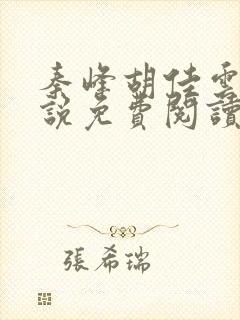 秦峰胡佳雲
說免費閱讀
張希瑞